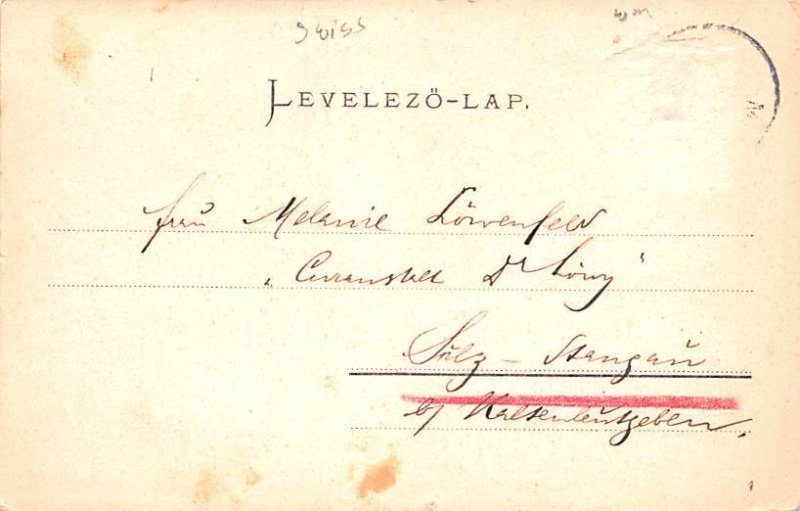 swiss
LEVELEZŐ-LAP.
Frau Melanie Löwenfeld
„Curanstalt Dr Löwy“
Sulz – Stangau
b/ Kaltenleutgeben.